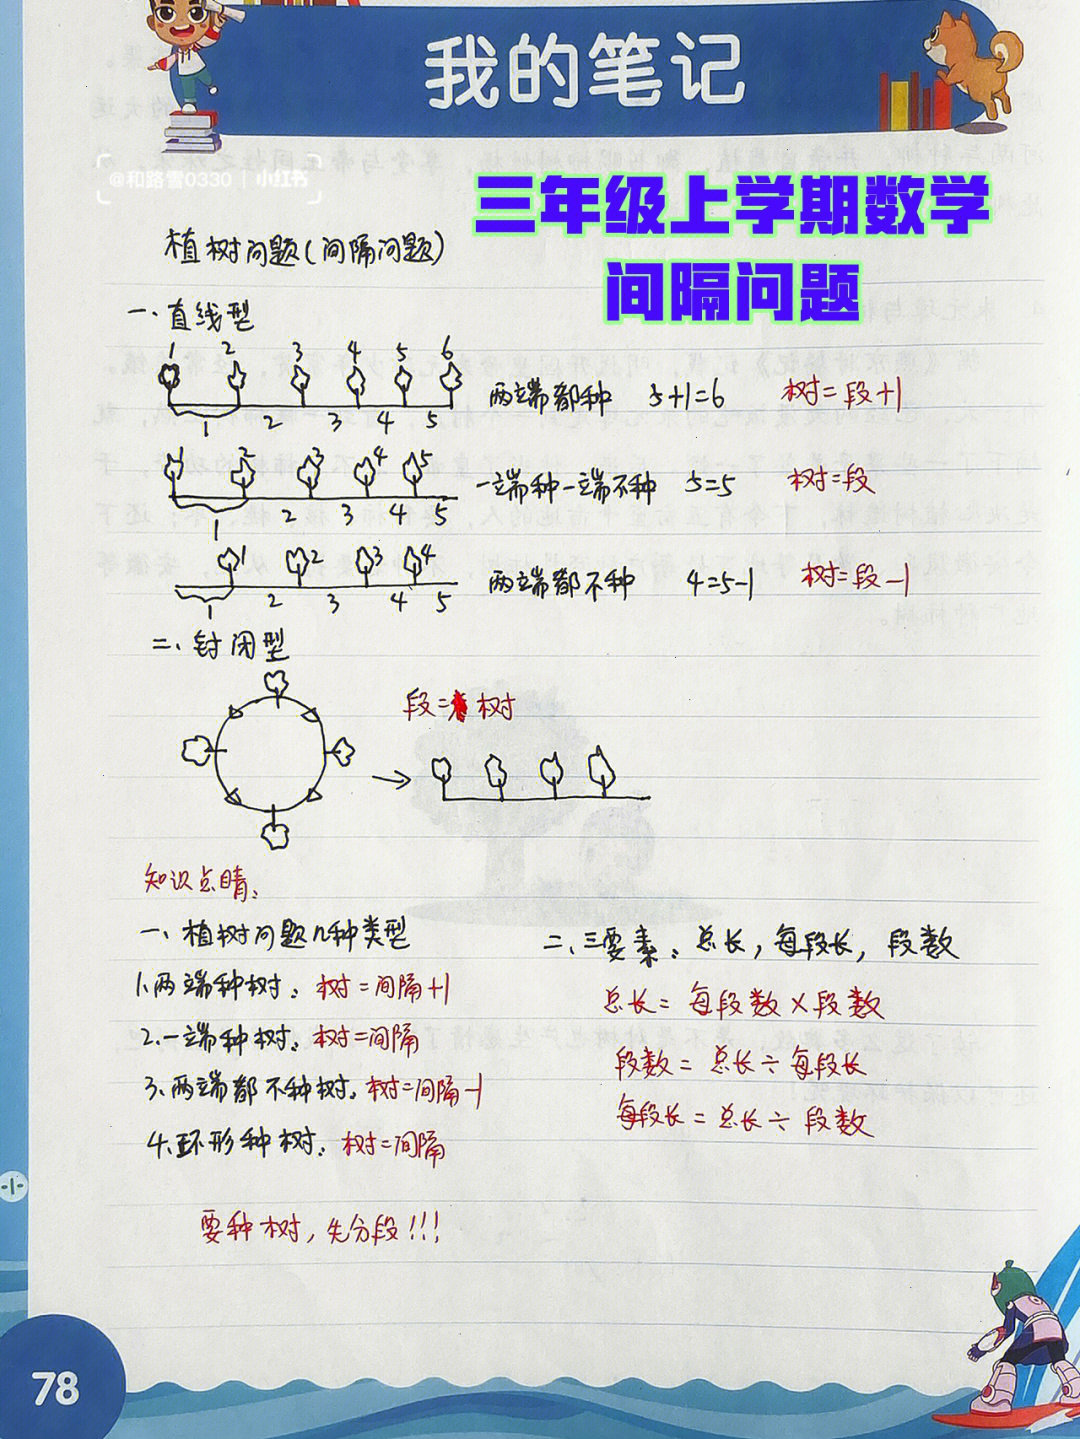 我的笔记
@和路雪0330 | 小红书
三年级上学期数学
间隔问题
植树问题(间隔问题)
一、直线型
1 2 3 4 5 6
两端都种 5+1=6 树=段+1
1 2 3 4 5
1 2 3 4 5
一端种一端不种 5=5 树=段
1 2 3 4 5
1 2 3 4
两端都不种 4=5-1 树=段-1
1 2 3 4 5
二、封闭型
段=树
知识点睛:
一、植树问题几种类型
1.两端种树: 树=间隔+1
2.一端种树: 树=间隔
3、两端都不种树: 树=间隔-1
4.环形种树: 树=间隔
要种树,先分段!!!
二、三要素:总长,每段长,段数
总长=每段数×段数
段数=总长÷每段长
每段长=总长÷段数
小
78